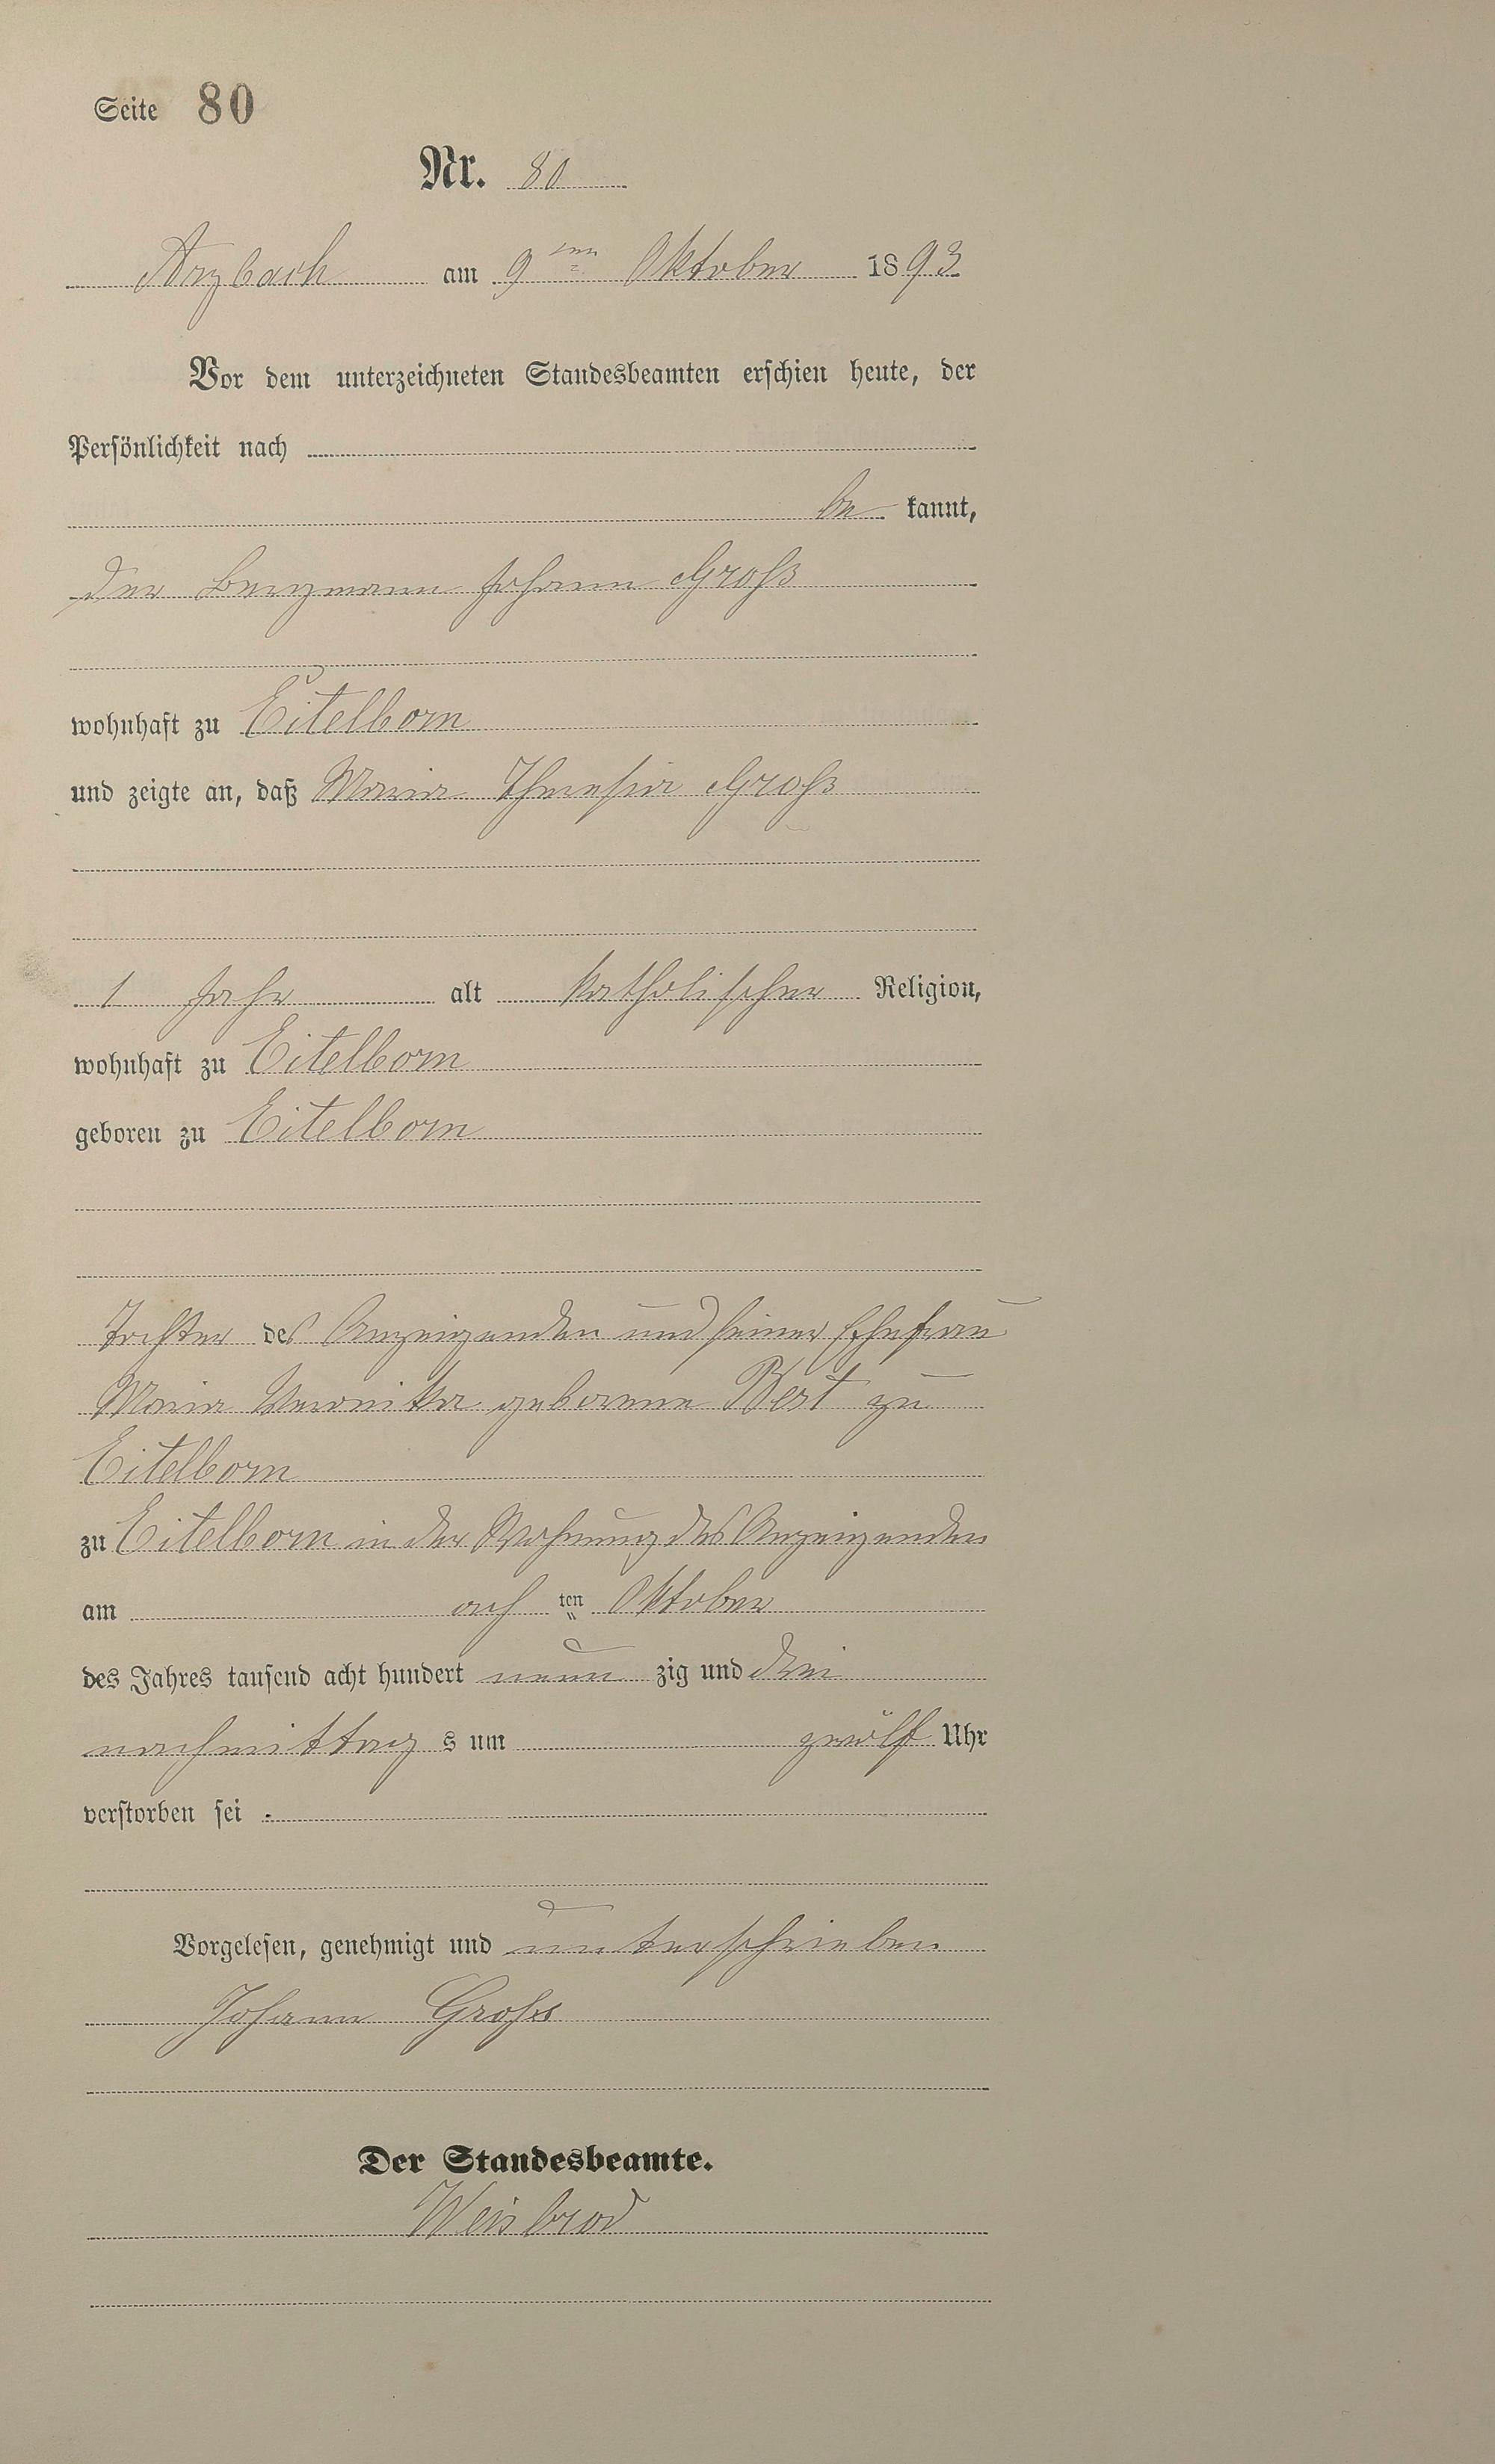 Seite 80
Nr. 80
Arzbach am 9ten Oktober 1893
Vor dem unterzeichneten Standesbeamten erschien heute, der
Persönlichkeit nach
be kannt,
der Bergmann Johann Groß
wohnhaft zu Eitelborn
und zeigte an, daß Maria Theresia Groß
1 Jahr alt katholischer Religion,
wohnhaft zu Eitelborn
geboren zu Eitelborn
Tochter des Anzeigenden und seiner Ehefrau
Maria Veronika geborene Best zu
Eitelborn
zu Eitelborn in der Wohnung des Anzeigenden
am ach ten Oktober
des Jahres tausend acht hundert neun zig und drei
nachmittag s um zwölf Uhr
verstorben sei.
Vorgelesen, genehmigt und unterschrieben
Johann Gross
Der Standesbeamte.
Weisbrod